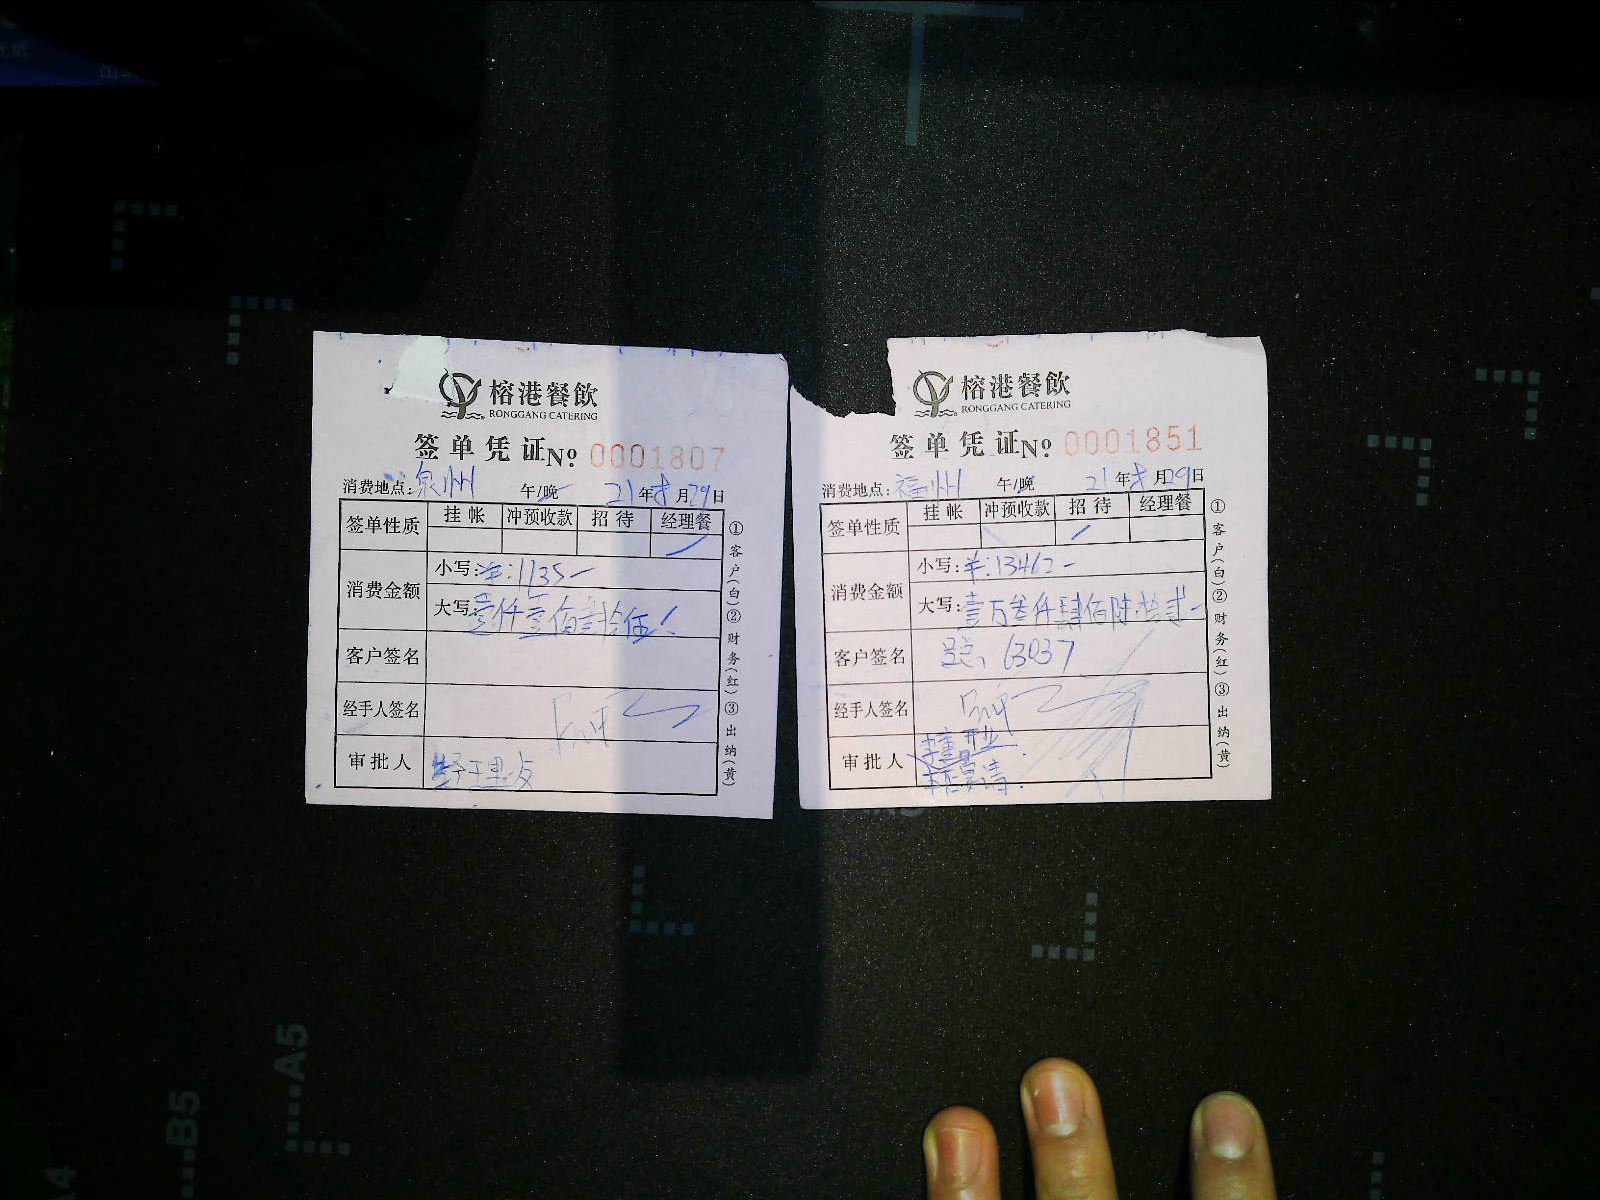 榕港餐飲
RONGGANG CATERING
签单凭证No. 0001807
消费地点: 泉州 午/晚 21年8月29日
签单性质 挂帐 冲预收款 招待 经理餐
消费金额
小写: ¥:1135-
大写: 壹仟壹佰叁拾伍
客户签名
经手人签名
审批人 经理
①客户(白)②财务(红)③出纳(黄)
榕港餐飲
RONGGANG CATERING
签单凭证No. 0001851
消费地点: 福州 午/晚 21年8月29日
签单性质 挂帐 冲预收款 招待 经理餐
消费金额
小写: ¥:13462-
大写: 壹万叁仟肆佰陆拾贰-
客户签名 63037
经手人签名
审批人
①客户(白)②财务(红)③出纳(黄)
A5
B5
A4